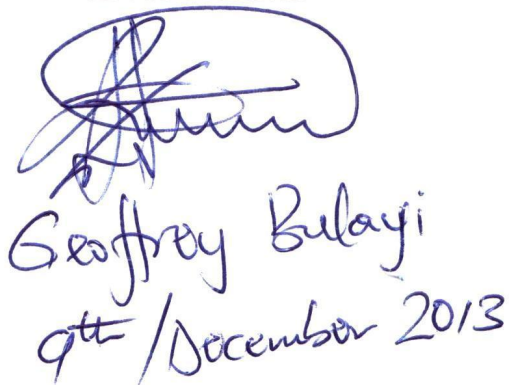 Geoffrey Bulayi
9th/December 2013